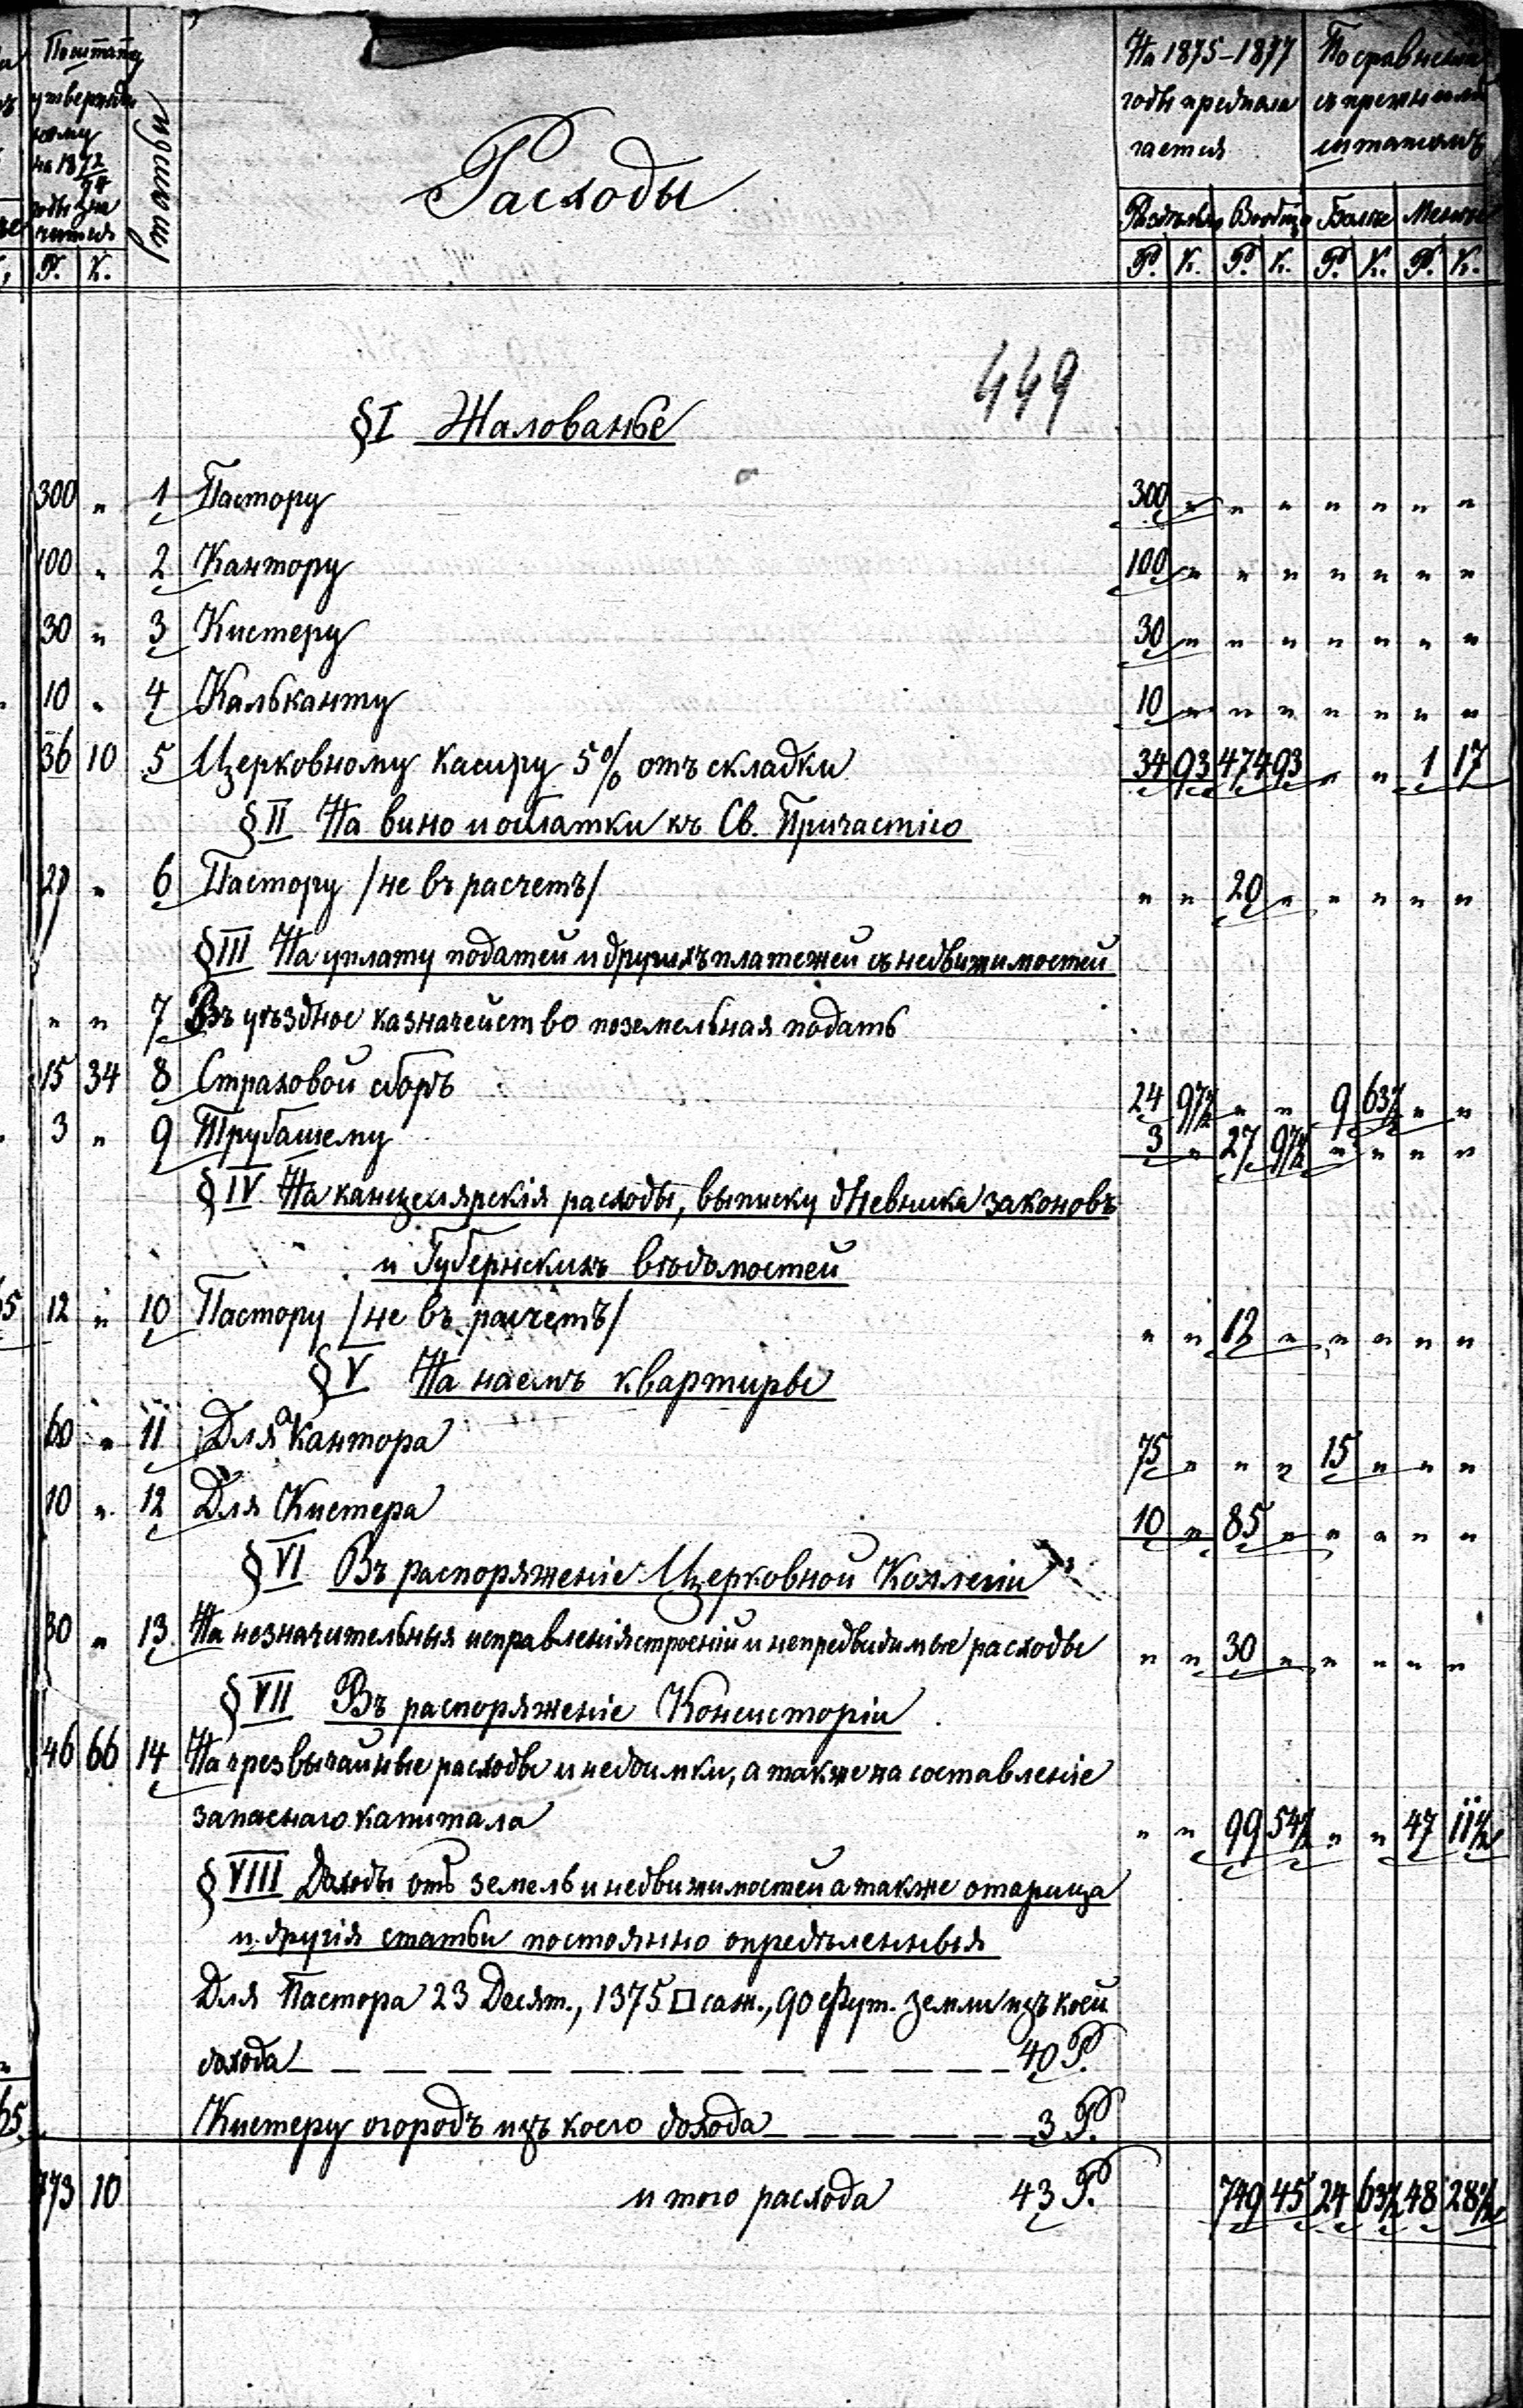 По штату утвержден ному на 1872/74 годы зна чится
позиции
Расходы
На 1875–1877 годы предпола гается
По сравнению съ прежнимъ штатомъ
Раздельно Вообще Больше Меньше
Р. К. Р. К. Р. К. Р. К. Р. К.
449
§ I Жалованье
300 " 1 Пастору 300 " " " " " " "
100 " 2 Кантору 100 " " " " " " "
30 " 3 Кистеру 30 " " " " " " "
10 " 4 Кальканту 10 " " " " " " "
36 10 5 Церковному касиру 5% отъ складки 34 93 474 93 " " 1 17
§ II На вино и оплатки къ Св. Причастію
20 " 6 Пастору /не въ расчетъ/ " " 20 " " " " "
§ III На уплату податей и другихъ платежей съ недвижимостей
" " 7 Въ уѣздное казначейство поземельная подать
15 34 8 Страховой сборъ 24 97½ " " 9 63½ " "
3 " 9 Трубашему 3 " 27 97½ " " " "
§ IV На канцелярскія расходы, выписку дневника законовъ
и Губернскихъ вѣдомостей
12 " 10 Пастору /не въ расчетъ/ " " 12 " " " " "
§ V На наемъ квартиры
60 " 11 Для Кантора 75 " " " 15 " " "
10 " 12 Для Кистера 10 " 85 " " " " "
§ VI Въ распоряженіе Церковной Коллегіи
30 " 13 На незначительныя исправленія строеній и непредвидимые расходы " " 30 " " " " "
§ VII Въ распоряженіе Консисторіи
146 66 14 На чрезвычайные расходы и недоимки, а также на составленіе
запаснаго капитала " " 99 54½ " " 47 11½
§ VIII Доходы отъ земель и недвижимостей а также
и другія статьи постоянно опредѣленныя
Для Пастора 23 Десят., 1375 □ саж., 90 фут. земли изъ коей
дохода 40 Р.
Кистеру огородъ изъ коего дохода 3 Р.
773 10 итого расхода 43 Р. 749 45 24 63½ 48 28½